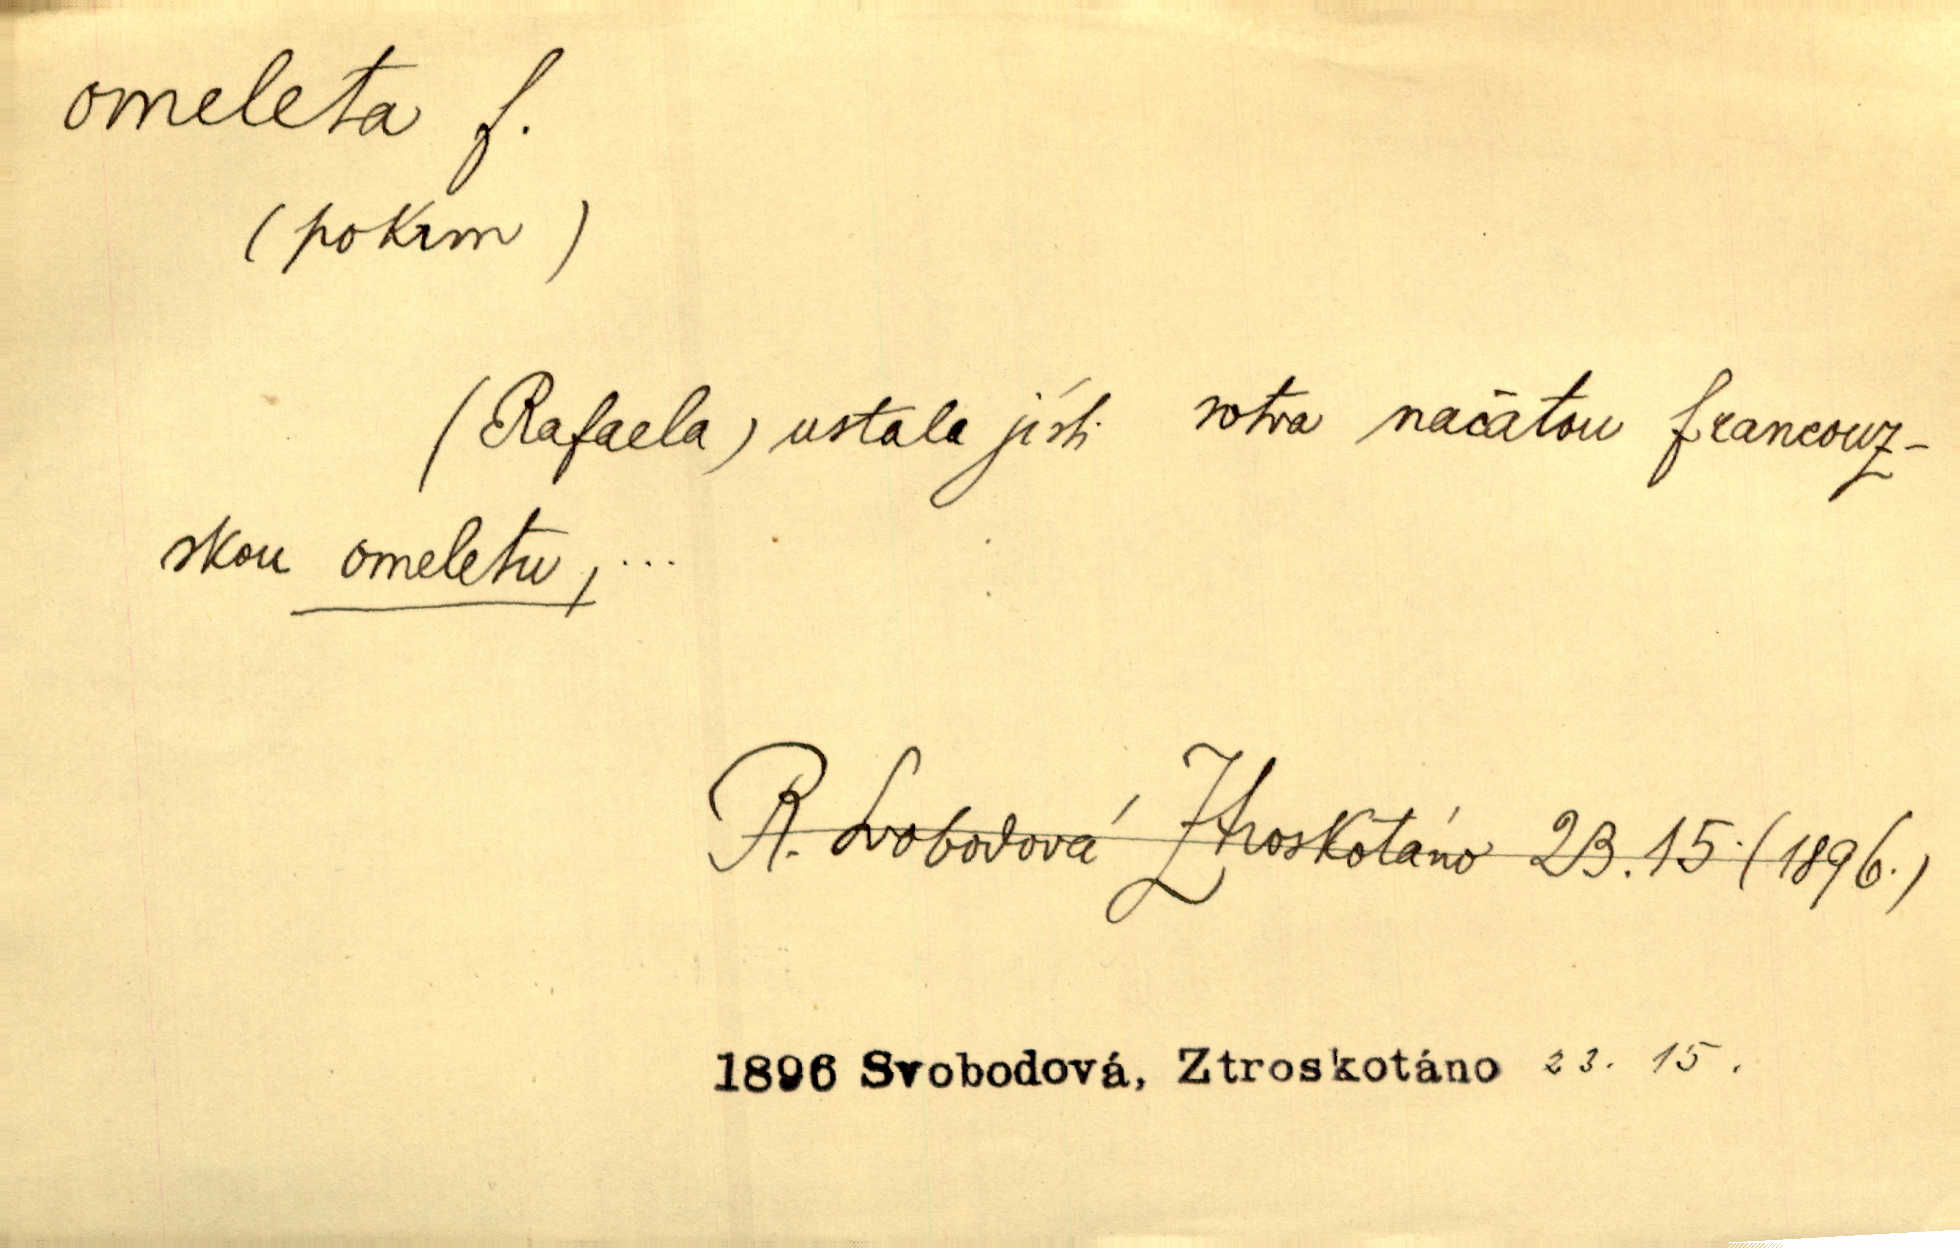 omeleta f.
(pokrm)
(Rafaela) ustala jísti sotva načatou francouz-
skou omeletu, ...
R. Svobodová Ztroskotáno 23. 15. (1896.)
1896 Svobodová, Ztroskotáno 23. 15.